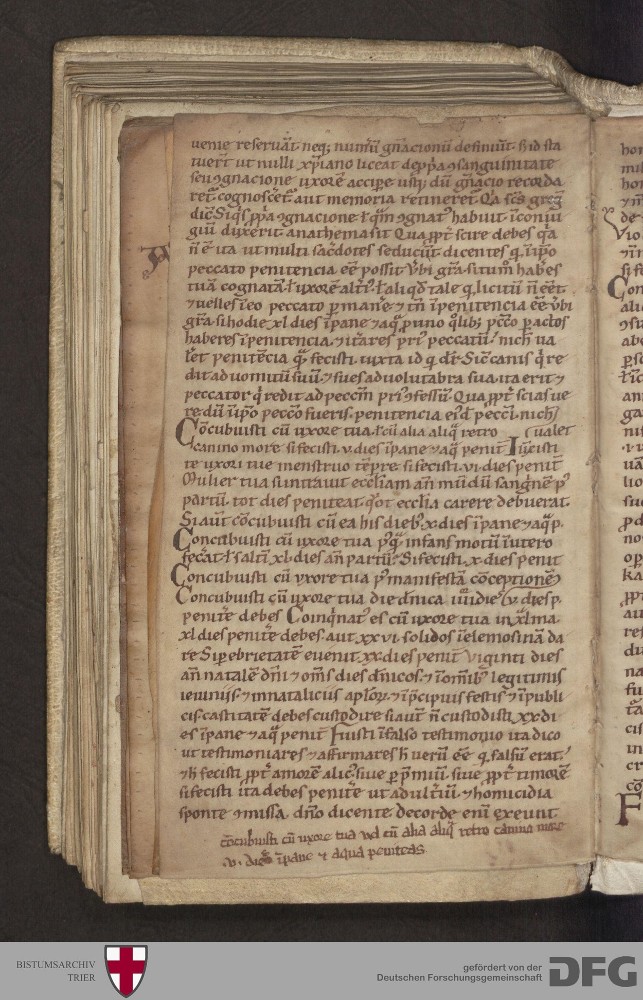 uenie reseruat̄. neq; numerū gn̄acionū definiuit. sꝫ id sta
tuer̄t ut nulli xp̄iano liceat de ꝓp̄a ꝯsanguinitate
seu ꝯgnacione uxorē accipe usq; dū gn̄acio recorda
ret᷑. cognoscet᷑. aut memoria retineret᷑ Q̄a sc̄s greg̃
dic̄. Siq̄s ꝓp̄a ꝯgnacione. ł q̄m ꝯgnat᷒ habuit. ī coniu
giū duxerit. anathema sit. Quaꝓpt᷑ scire debes q̄a
n̄ ē ita ut multi sac̄dotes seducūt. dicentes q̄ īip̄o
peccato penitencia eē possit. Vbi gr̄a. si tu m̊ habes
tuā cognatā. ł uxorē alt̄i᷒. ł aliqd̄ tale q̄ licitū n̄ eet̄.
⁊ uelles ī eo peccato ꝑman̄e ⁊ tn̄ ī penitencia eē. Vbi
gr̄a. si hodie. xl. dies īpane ⁊ aq̄. ꝓ uno q̄lib; pc̄c̄o ꝑactos
haberes īpenitencia. ⁊ it̄ares pri᷒ peccatū. nich̄ ua
let penitēcia q̄ fecisti. iuxta id q̄ dr̄. Sic̄ canis q̄ re
dit ad uomitū suū. ⁊ sues ad uolutabra sua. ita erit ⁊
peccator q̄ redit ad pecc̄m pri᷒ ꝯfessū. Quaꝓpt᷑ scias ue
re. dū īip̄o pecc̄o fueris. penitencia ei᷒d̄ pecc̄i. nich̄
Cōcubuisti cū uxore tua. ł cū alia aliq̄ retro ualet
canino more. si fecisti. v. dies īpane ⁊ aq̄ penit̄ Iūc̄isti
te uxori tue menstruo tēpre. si fecisti. vi. dies penit̄
Mulier tua si intrauit eccl̄iam an̄ mūdū sangn̄ē p᷒
partū. tot dies peniteat. q̊t eccl̄ia carere debuerat.
Si aut̄ cōcubuisti cū ea his dieb᷒. x. dies īpane ⁊ aq̄ p.
Concubuisti cū uxore tua p᷒q̄ infans motū ī utero
fec̄at. ł saltī xl. dies an̄ partū. Si fecisti. x. dies penit̄
Concubuisti cū uxore tua p᷒ manifestā cōceptionē
Concubuisti cū uxore tua die dn̄ica v. dies p.
penit̄e debes Coinq̄nat᷒ es cū uxore tua in xl̄ma.
xl. dies penit̄e debes. aut xxvi. solidos ī elemosinā da
re. Si ꝑ ebrietatē euenit. xx. dies penit̄ Viginti dies
an̄ natalē dn̄i. ⁊ om̄s dies dn̄icos. ⁊ ī om̄ib᷒ legitimis
ieiuniis. ⁊ in nataliciis aplōꝝ. ⁊ ī p̄cipuis festis ⁊ ī publi
cis. castitatē debes custodire. si aut̄ n̄ custodisti. xx. di
es īpane ⁊ aq̄ penit̄ Fuisti ī falso testimonio. ita dico
ut testimoniares ⁊ affirmares h̄ uerū eē. q̄ falsū erat.
⁊ h̄ fecisti ꝓpt᷑ amorē alic᷒. siue ꝑ p̄miū. siue ꝓpt᷑ timorē
si fecisti. ita debes penit̄e ut adult̄iū. ⁊ homicidia
sponte ꝯmissa. dn̄o dicente de corde eni᷒ exeunt
cōcubuisti cū uxore tua uel cū alia aliq̄ retro canina more
v. dies īpane ⁊ aqua peniteas
BISTUMSARCHIV
TRIER
gefördert von der
Deutschen Forschungsgemeinschaft
DFG